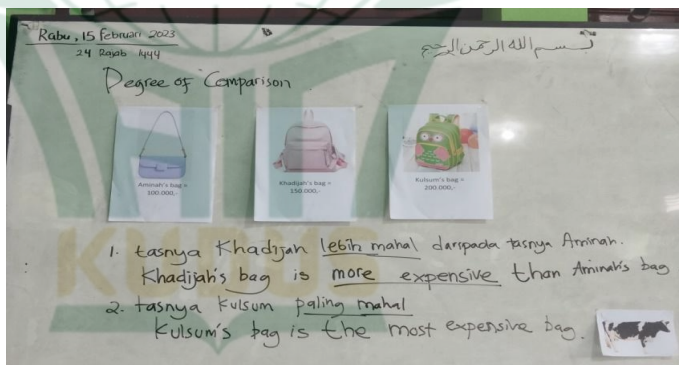 Rabu, 15 Februari 2023
24 Rajab 1444
بسم الله الرحمن الرحيم
Degree of Comparison
Aminah's bag =
100.000,-
Khadijah's bag =
150.000,-
Kulsum's bag =
200.000,-
1. tasnya Khadijah lebih mahal daripada tasnya Aminah.
Khadijah's bag is more expensive than Aminah's bag
2. tasnya Kulsum paling mahal
Kulsum's bag is the most expensive bag.
KUDUS